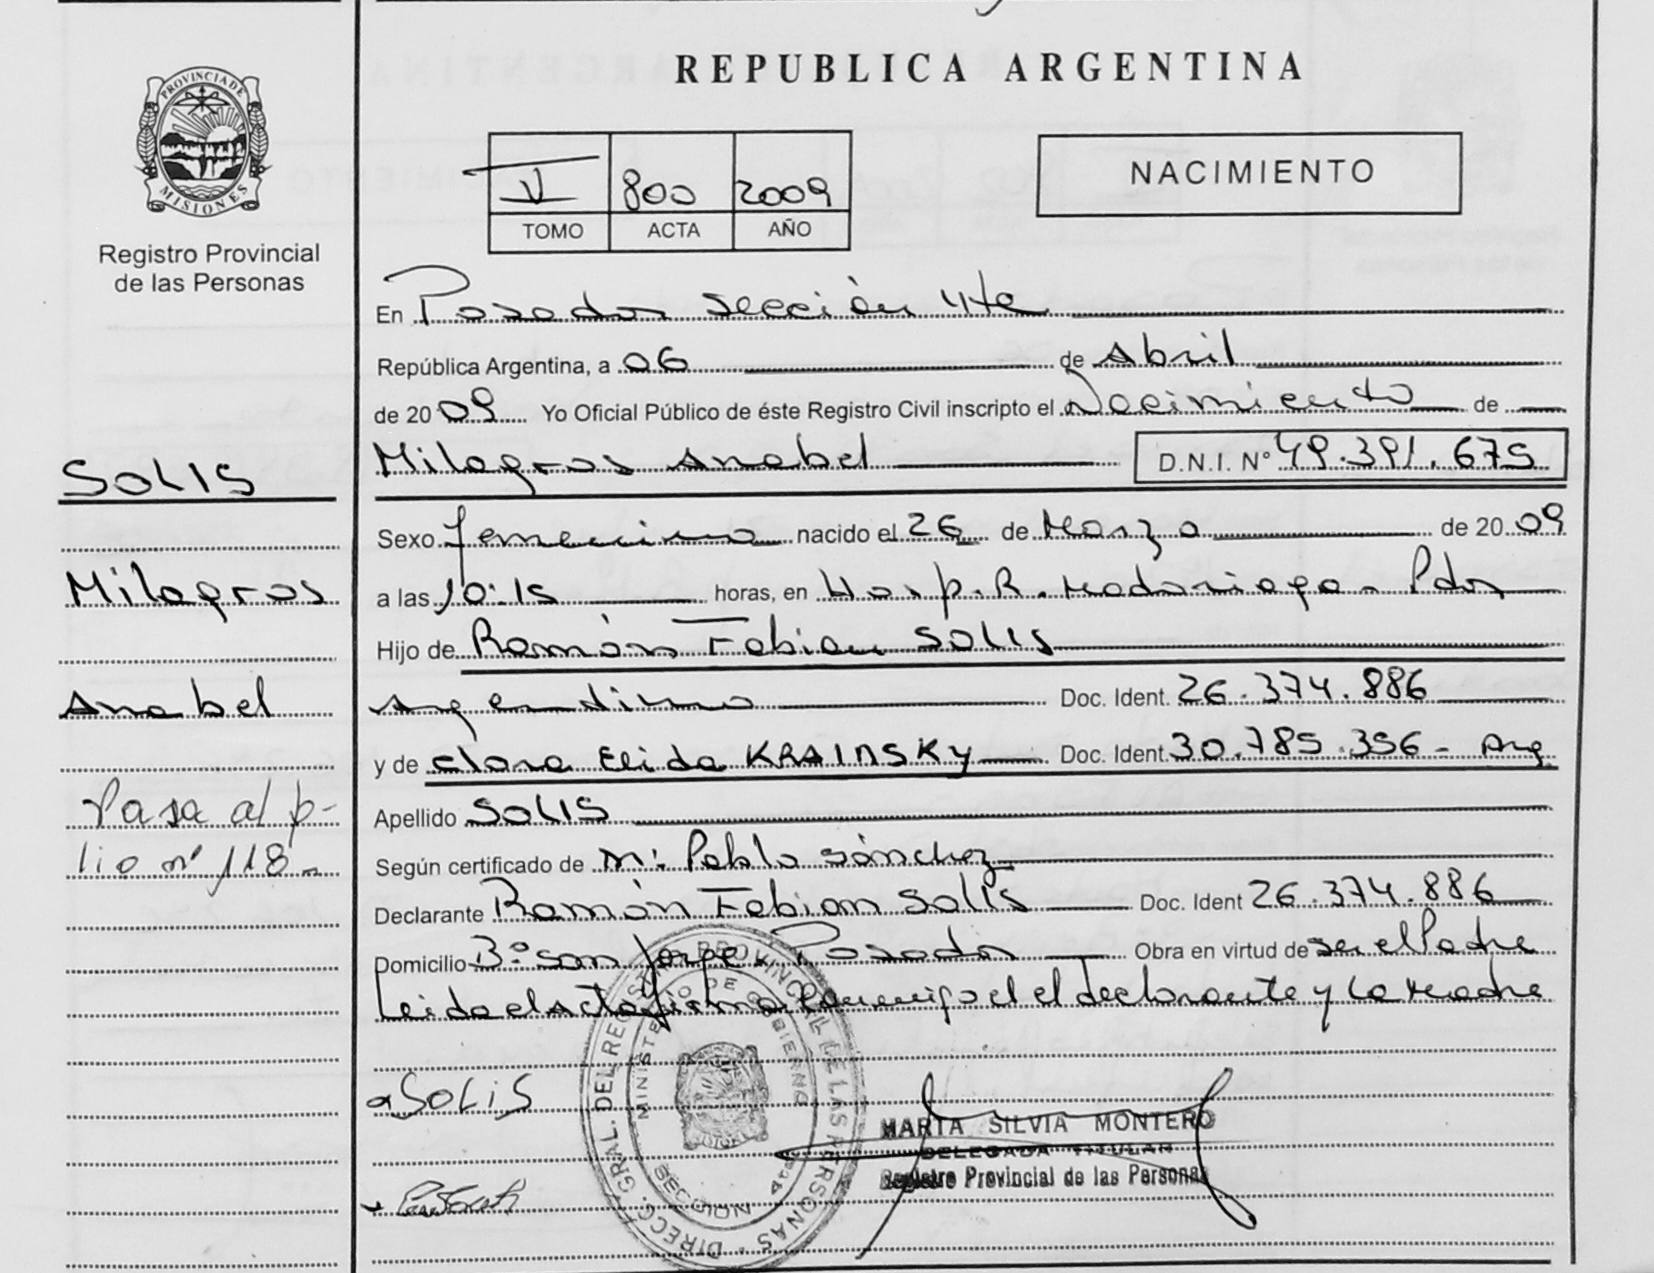 REPUBLICA ARGENTINA
PROVINCIA DE MISIONES
Registro Provincial
de las Personas
V 800 2009
TOMO ACTA AÑO
NACIMIENTO
En Posadas Sección 4ta
República Argentina, a 06 de Abril
de 2009 Yo Oficial Público de éste Registro Civil inscripto el Nacimiento de
Milagros Anabel D.N.I. Nº 49.391.675
SOLIS
Milagros
Anabel
Pasa al fo-
lio nº 118
Sexo femenino nacido el 26 de Marzo de 2009
a las 10:15 horas, en Hosp. R. Madariaga - Pdas
Hijo de Ramón Fabian SOLIS
Argentino Doc. Ident. 26.374.886
y de Clara Elida KRAINSKY Doc. Ident. 30.785.356 - Arg.
Apellido SOLIS
Según certificado de M: Pablo Sánchez
Declarante Ramón Fabian Solis Doc. Ident 26.374.886
Domicilio Bº San Jorge - Posadas Obra en virtud de ser el Padre
Leida el Acta firma conmigo el declarante y la madre
SOLIS
DIRECC. GRAL. DEL REGISTRO PROVINCIAL DE LAS PERSONAS
MINISTERIO DE GOBIERNO
SECCION 4ta
MARTA SILVIA MONTERO
DELEGADA TITULAR
Registro Provincial de las Personas